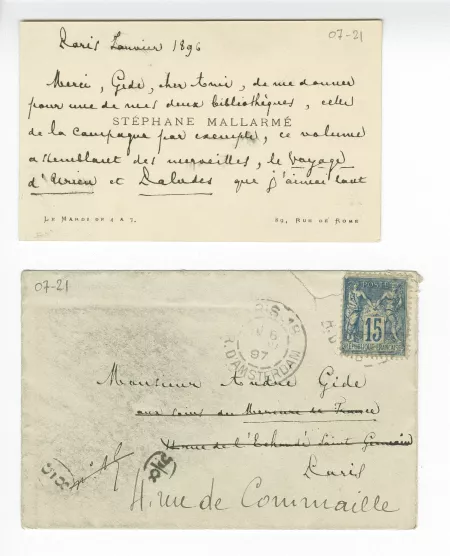 07-21
Paris Janvier 1896
Merci, Gide, cher Ami, de me donner
pour une de mes deux bibliothèques, celle
STÉPHANE MALLARMÉ
de la campagne par exemple, ce volume
assemblant des merveilles, le Voyage
d'Urien et Paludes que j'aimai tant
LE MARDI DE 4 A 7.
89, RUE DE ROME
07-21
POSTE
15
R. D'AMSTERDAM
97
Monsieur André Gide
aux soins du Mercure de France
rue de l'Echaudé Saint Germain
Paris
4. rue de Commaille